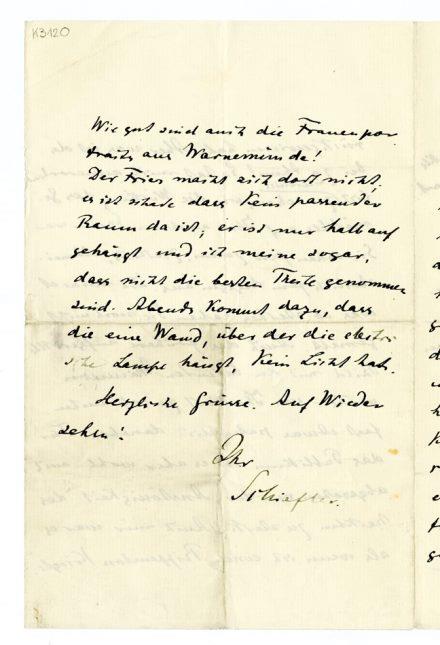 K3120
Wie gut sind auch die Frauenpor
traits aus Warnemünde!
Der Fries macht sich dort nicht,
es ist schade dass kein passender
Raum da ist; er ist nur halb auf
gehängt und ich meine sogar,
dass nicht die besten Theile genommen
sind. Abends kommt dazu, dass
die eine Wand, über der die electri
sche Lampe hängt, kein Licht hat.
Herzliche Grüsse. Auf Wieder
sehen!
Ihr
Schiefler.